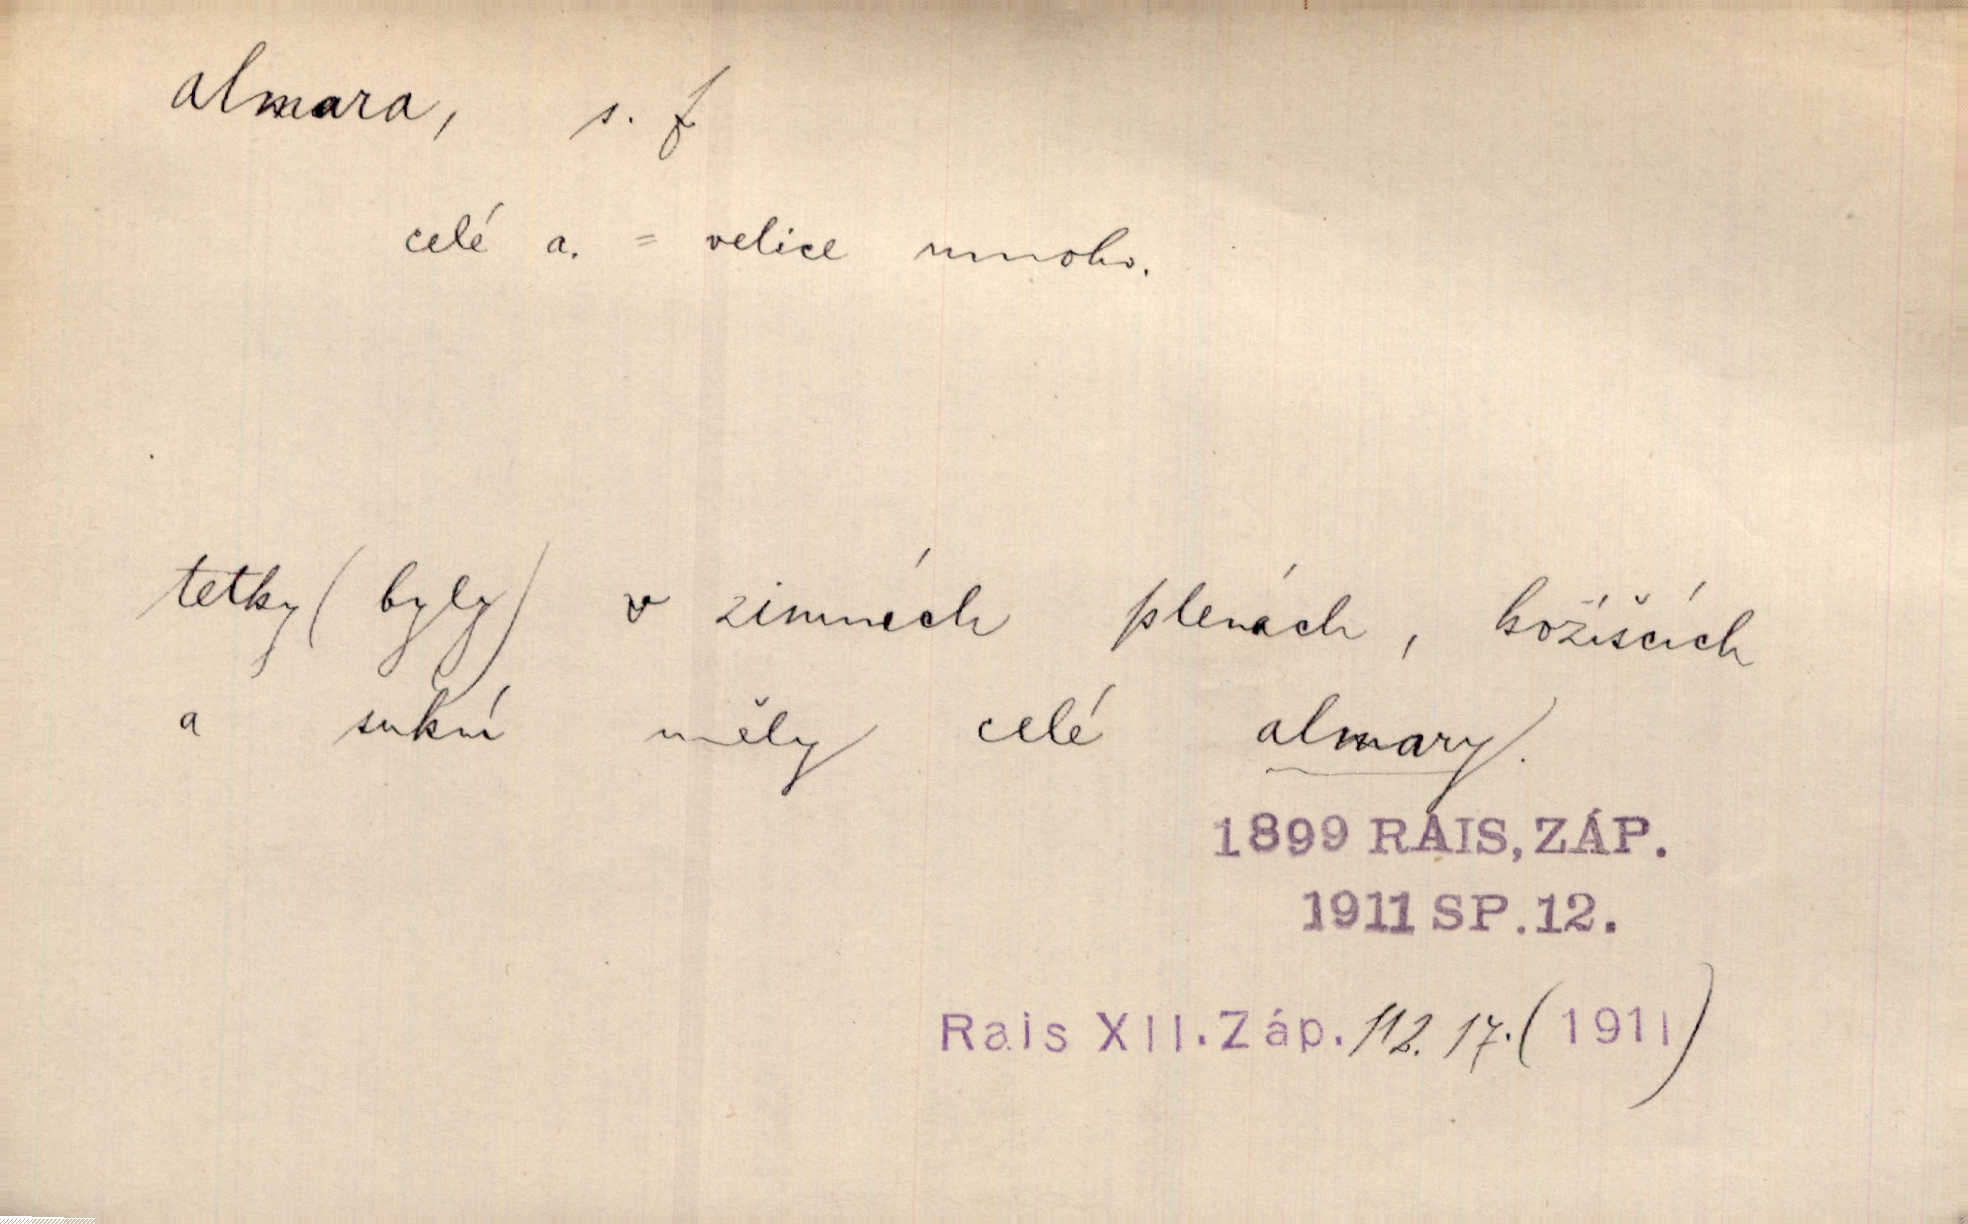 almara, s. f
celé a. = velice mnoho.
tetky (byly) v zimních plenách, kožíšcích
a sukní měly celé almary.
1899 RAIS, ZÁP.
1911 SP. 12.
Rais XII. Záp. 112. 17. (1911)